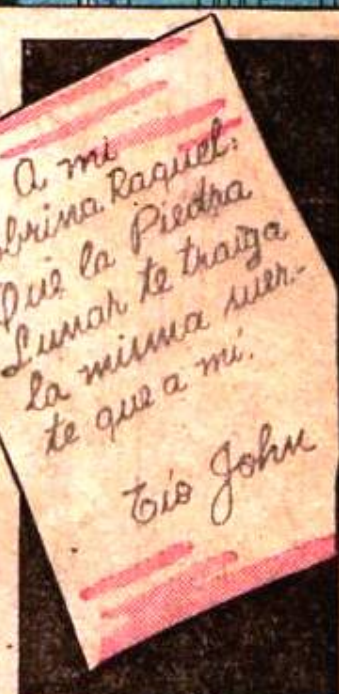 A mi
obrina Raquel:
Que la Piedra
Lunar te traiga
la misma suer-
te que a mí.
tío John